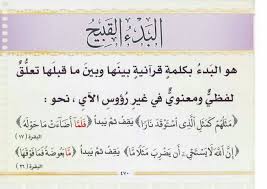 البَدْءُ القَبِيحُ
هو البَدءُ بكلمةٍ قرآنيةٍ بينَها وبينَ ما قبلَها تعلُّقٌ
لفظيٌّ ومعنويٌّ في غيرِ رؤوسِ الآيِ ، نحو :
﴿مَثَلُهُمْ كَمَثَلِ الَّذِي اسْتَوْقَدَ نَارًا﴾ يقف ثم يبدأ ﴿فَلَمَّا أَضَاءَتْ مَا حَوْلَهُ﴾
البقرة (١٧)
﴿إِنَّ اللَّهَ لَا يَسْتَحْيِي أَن يَضْرِبَ مَثَلًا مَا﴾ يقف ثم يبدأ ﴿مَّا بَعُوضَةً فَمَا فَوْقَهَا﴾
البقرة (٢٦)
٤٧٠